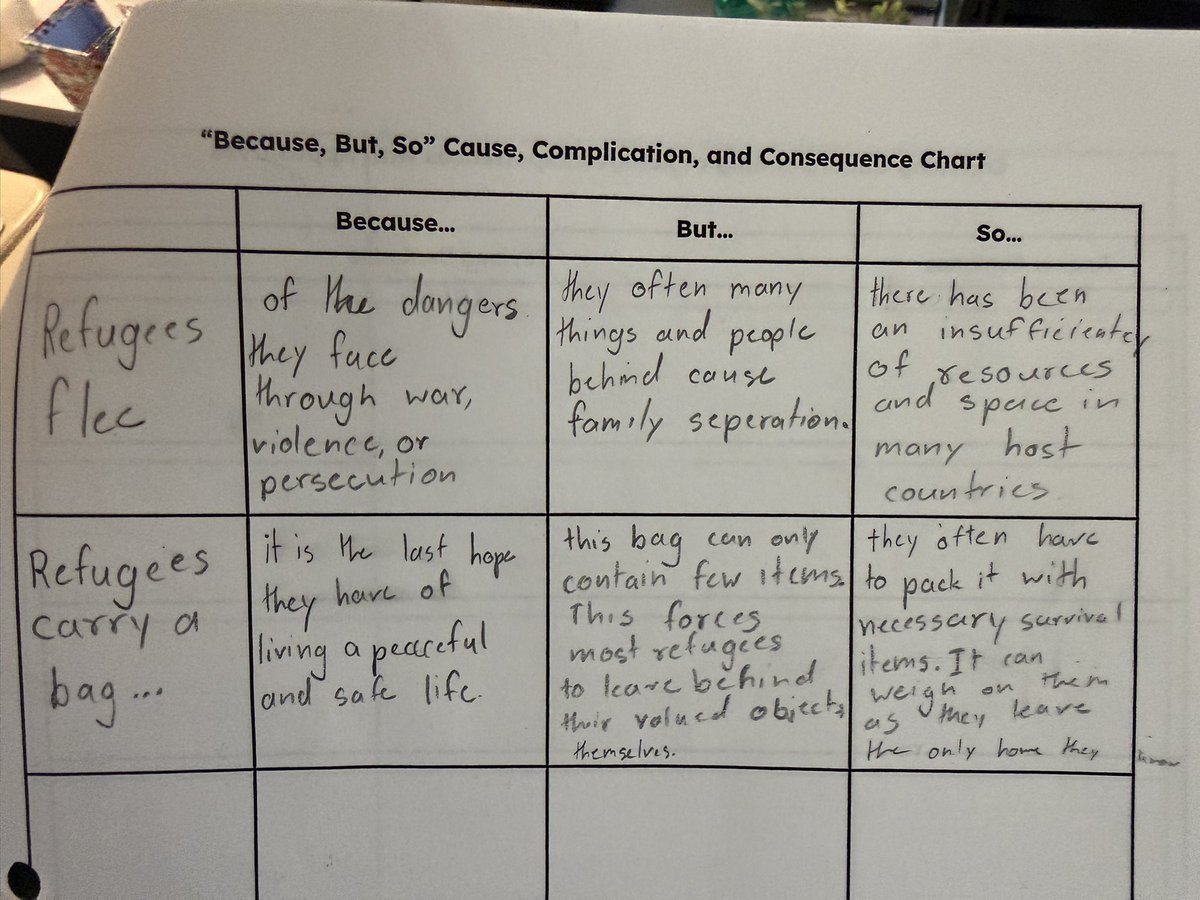 “Because, But, So” Cause, Complication, and Consequence Chart
Because...
But...
So...
Refugees
flee
of the dangers
they face
through war,
violence, or
persecution
they often many
things and people
behind cause
family seperation.
there has been
an insufficientcy
of resources
and space in
many host
countries
Refugees
carry a
bag...
it is the last hope
they have of
living a peaceful
and safe life.
this bag can only
contain few items.
This forces
most refugees
to leave behind
their valued objects
themselves.
they often have
to pack it with
necessary survival
items. It can
weigh on them
as they leave
the only home they
know